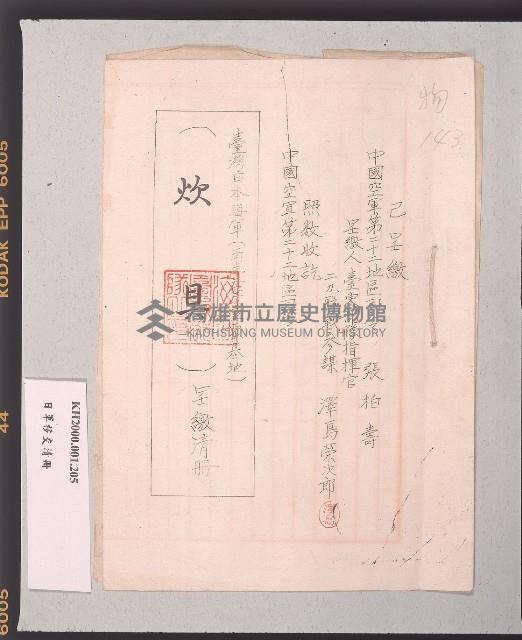 物
143
已呈繳
中國空軍第二十二地區司 張柏壽
呈繳人 臺東 指揮官
參謀 澤島榮次郎
照數收訖
中國空軍第二十二地區
臺灣日本海軍 基地
炊具
呈繳清冊
高雄市立歷史博物館
KAOHSIUNG MUSEUM OF HISTORY
KH2000.001.205
日軍移交清冊
KODAK EPP 6005
44
6005